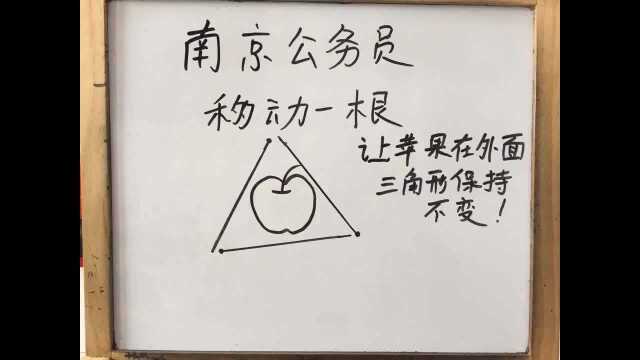 南京公务员
移动一根
让苹果在外面
三角形保持
不变！